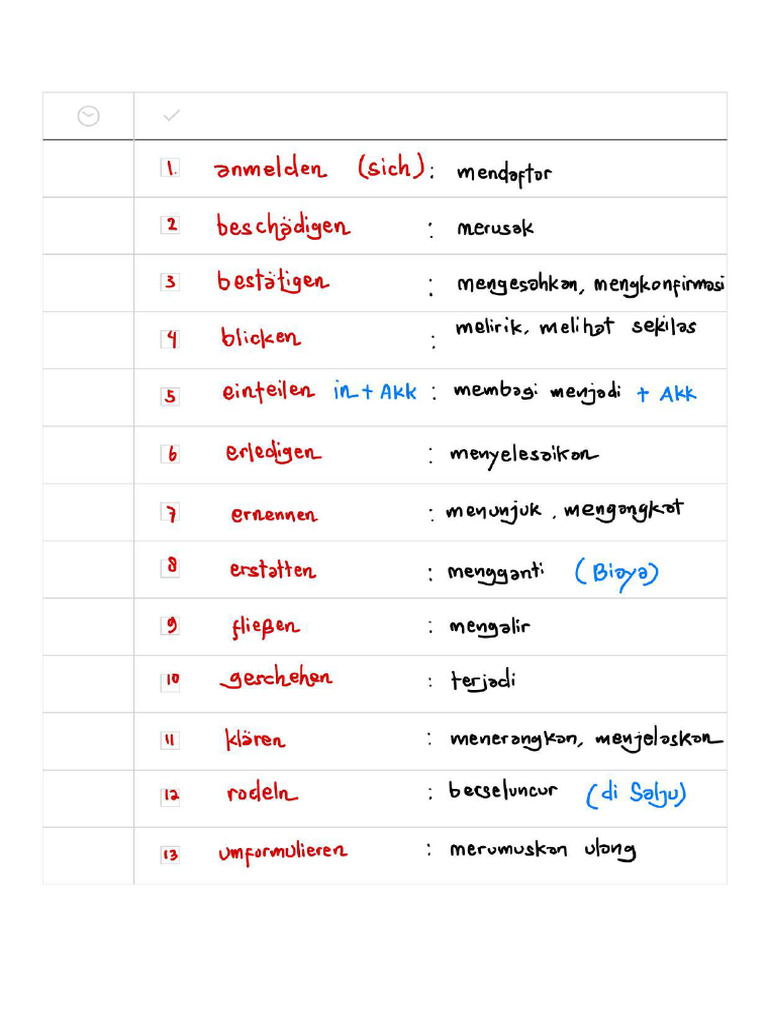 1. anmelden (sich) : mendaftar
2 beschädigen : merusak
3 bestätigen : mengesahkan, mengkonfirmasi
4 blicken : melirik, melihat sekilas
5 einteilen in + Akk : membagi menjadi + Akk
6 erledigen : menyelesaikan
7 ernennen : menunjuk, mengangkat
8 erstatten : mengganti (Biaya)
9 fließen : mengalir
10 geschehen : terjadi
11 klären : menerangkan, menjelaskan
12 rodeln : berseluncur (di Salju)
13 umformulieren : merumuskan ulang